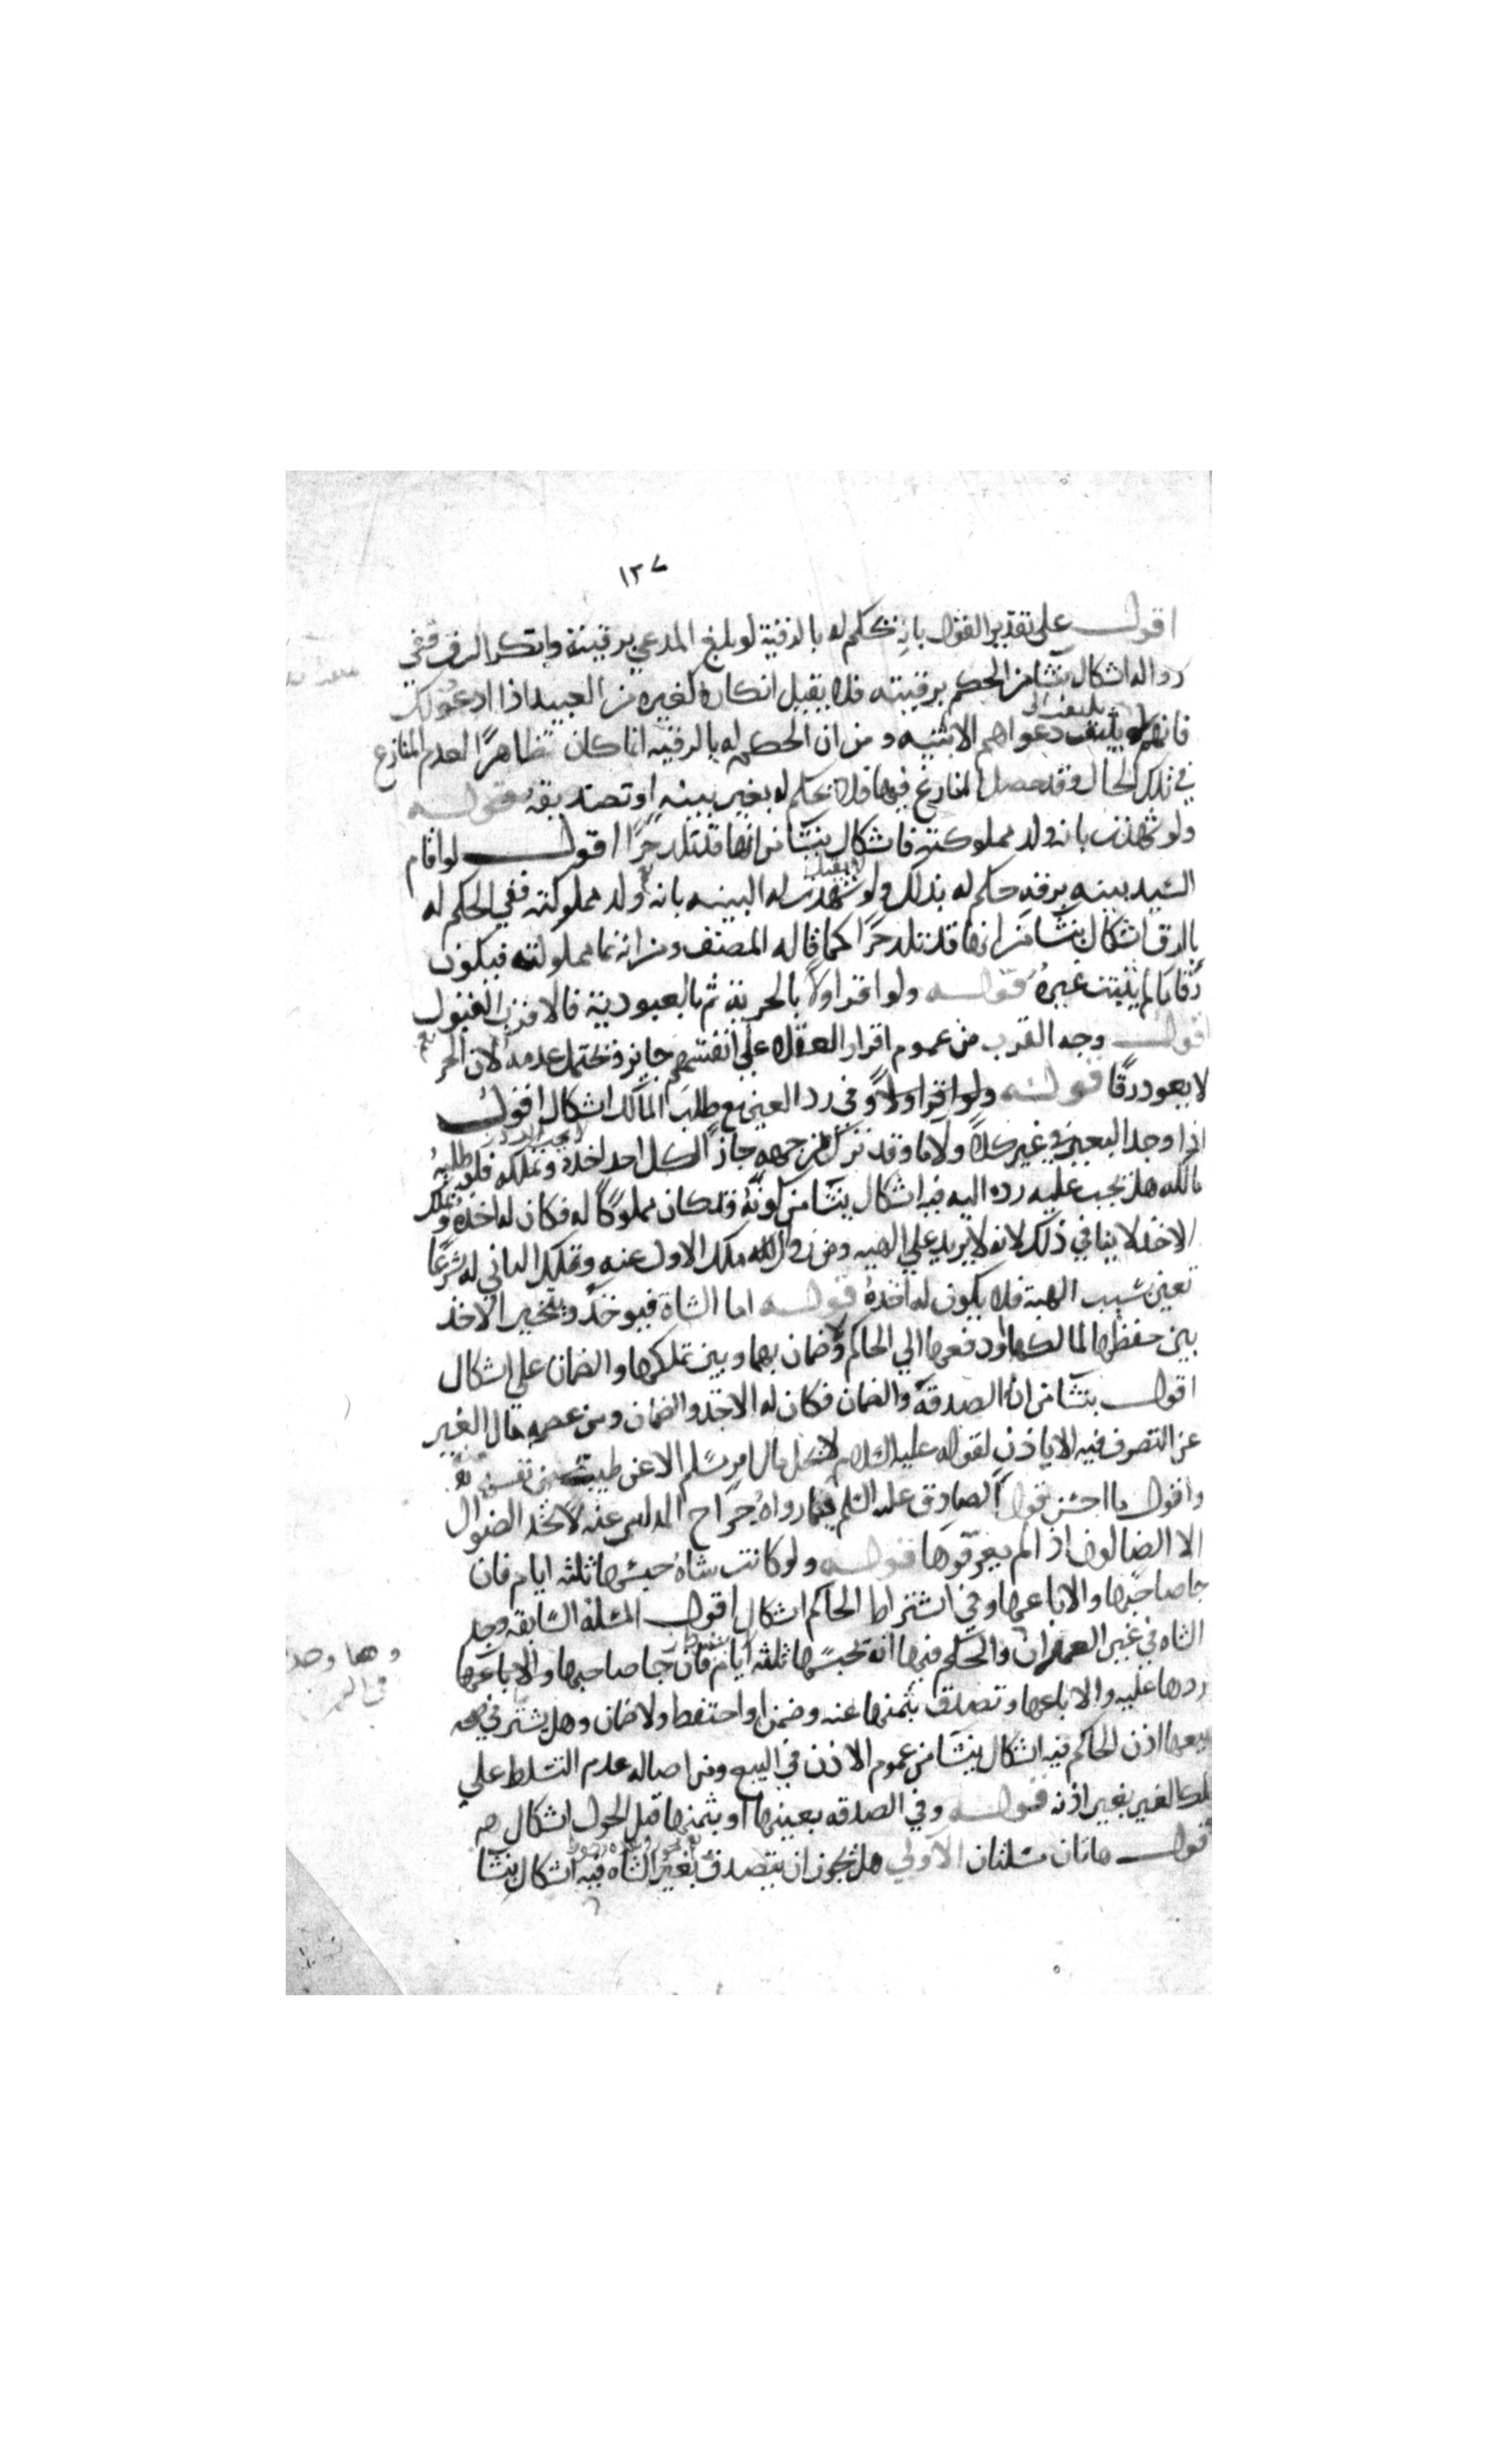 ١٢٧
اقول على تقدير القول بانه يحكم له بالرقية لو بلغ المدعي برقيته وانكر الرق ففي
زواله اشكال ينشا من الحكم برقيته فلا يقبل انكاره كغيره من العبيد اذا ادعو ذلك
فانهم لا يلتفت دعواهم الا ببينه ومن ان الحكم له بالرقيه انما كان ظاهرًا لعدم المنازع
في تلك الحال وقد حصل المنازع فيها فلا يحكم له بغير بينه او تصديقه قوله
ولو شهدت بانه ولد مملوكته فاشكال ينشا من انها قد تلد حرًا اقول لو اقام
السيد بينه برقه حكم له بذلك ولو شهدت له البينه بانه ولد مملوكته ففي الحكم له
بالرق اشكال ينشا من انها قد تلد حرًا كما قاله المصنف ومن انه نما مملوكته فيكون
رقا ما لم يثبت غيره قوله ولو اقر اولا بالحرية ثم بالعبودية فالاقرب القبول
اقول وجه القرب من عموم اقرار العقلاء على انفسهم جايز ويحتمل عدمه لان الحر
لا يعود رقًا قوله ولو اقر اولا وفي رد العين مع طلب المالك اشكال اقول
اذا وجد البعير في غير كلاء ولا ما وقد ترك من جهد جاز لكل احد اخذه وتملكه فلو طلبه
مالكه هل يجب عليه رده اليه فيه اشكال ينشا من كونه وقد كان مملوكًا له فكان له اخذه وتملك
الاخذ لا ينافي ذلك لانه لا يزيد علي الهبه ومن زوال ملك الاول عنه وتملك الثاني له شرعًا
بغير سبب الهبة فلا يكون له اخذه قوله اما الشاة فيوخذ ويتخير الاخذ
بين حفظها لمالكها او دفعها الي الحاكم ولا ضمان بهما وبين تملكها والضمان علي اشكال
اقول ينشا من ان له الصدقة والضمان فكان له الاخذ والضمان ومن عصمه مال الغير
عن التصرف فيه الا باذن لقوله عليه السلام لا يحل مال امرء مسلم الا عن طيب نفس منه
واقول ما احسن قول الصادق عليه السلم فيما رواه جراح المداني عنه لا ياخذ الضوال
الا الضالون اذا لم يعرفوها قوله ولو كانت شاة حبسها ثلثه ايام فان
جا صاحبها والا باعها وفي اشتراط الحاكم اشكال اقول المسئلة السابقه وجد
الشاه في غير العمران والحكم فيها انه يحبسها ثلثه ايام فان جا صاحبها والا باعها
ردها عليه والا باعها وتصدق بثمنها عنه وضمن او احتفظ ولا ضمان وهل يشترط في
بيعها اذن الحاكم فيه اشكال ينشا من عموم الاذن في البيع ومن اصاله عدم التسلط علي
ملك الغير بغير اذنه قوله وفي الصدقه بعينها او بثمنها قبل الحول اشكال
اقول هاتان مسئلتان الاولي هل يجوز ان يتصدق بعين الشاه فيه اشكال ينشا
وهما وجد